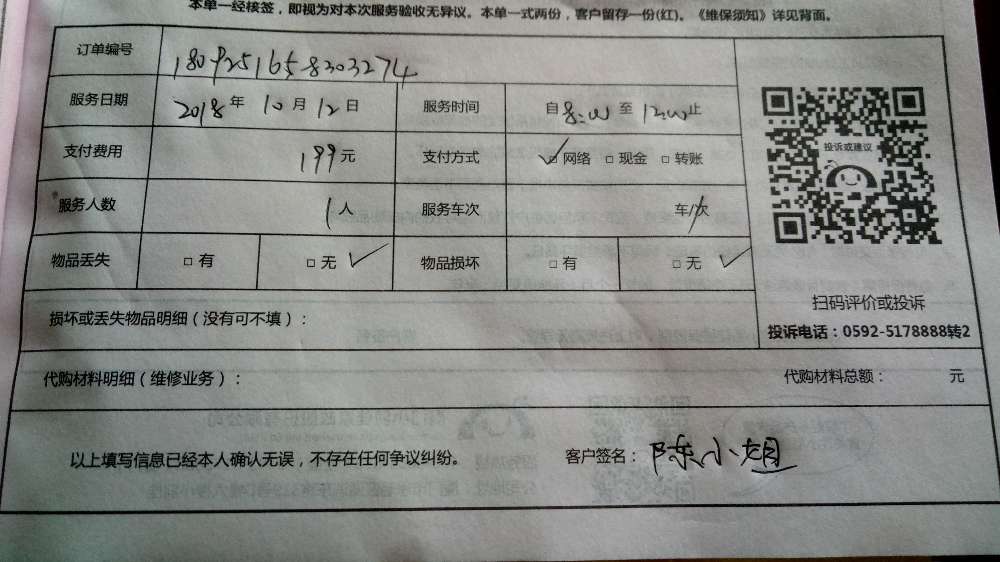 本单一经核签，即视为对本次服务验收无异议。本单一式两份，客户留存一份(红)。《维保须知》详见背面。
订单编号 1809251658303274
服务日期 2018 年 10 月 12 日 服务时间 自 8:00 至 12:00 止
支付费用 199 元 支付方式 ☑ 网络 □ 现金 □ 转账
投诉或建议
服务人数 1 人 服务车次 车/次
物品丢失 □ 有 □ 无 ✓ 物品损坏 □ 有 □ 无 ✓
扫码评价或投诉
损坏或丢失物品明细（没有可不填）：
投诉电话：0592-5178888转2
代购材料明细（维修业务）： 代购材料总额： 元
以上填写信息已经本人确认无误，不存在任何争议纠纷。 客户签名： 陈小姐